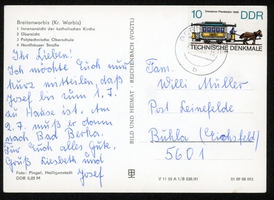 Breitenworbis (Kr. Worbis)
1 Innenansicht der katholischen Kirche
2 Übersicht
3 Polytechnische Oberschule
4 Nordhäuser Straße
Ihr Lieben.
Ich möchte Euch nur
kurz mitteilen, daß
Josef bis zum 1.7.
zu Hause ist. Am
2.7. muß er dann
nach Bad Berka.
Für Euch alles Gute.
Gruß Liesbeth und
Josef
Foto: Pingel, Heiligenstadt
DDR 0,25 M
BILD UND HEIMAT REICHENBACH (VOGTL)
10 DDR
TECHNISCHE DENKMALE
Fam.
Willi Müller
Post Leinefelde
Buhla (Eichsfeld)
5601